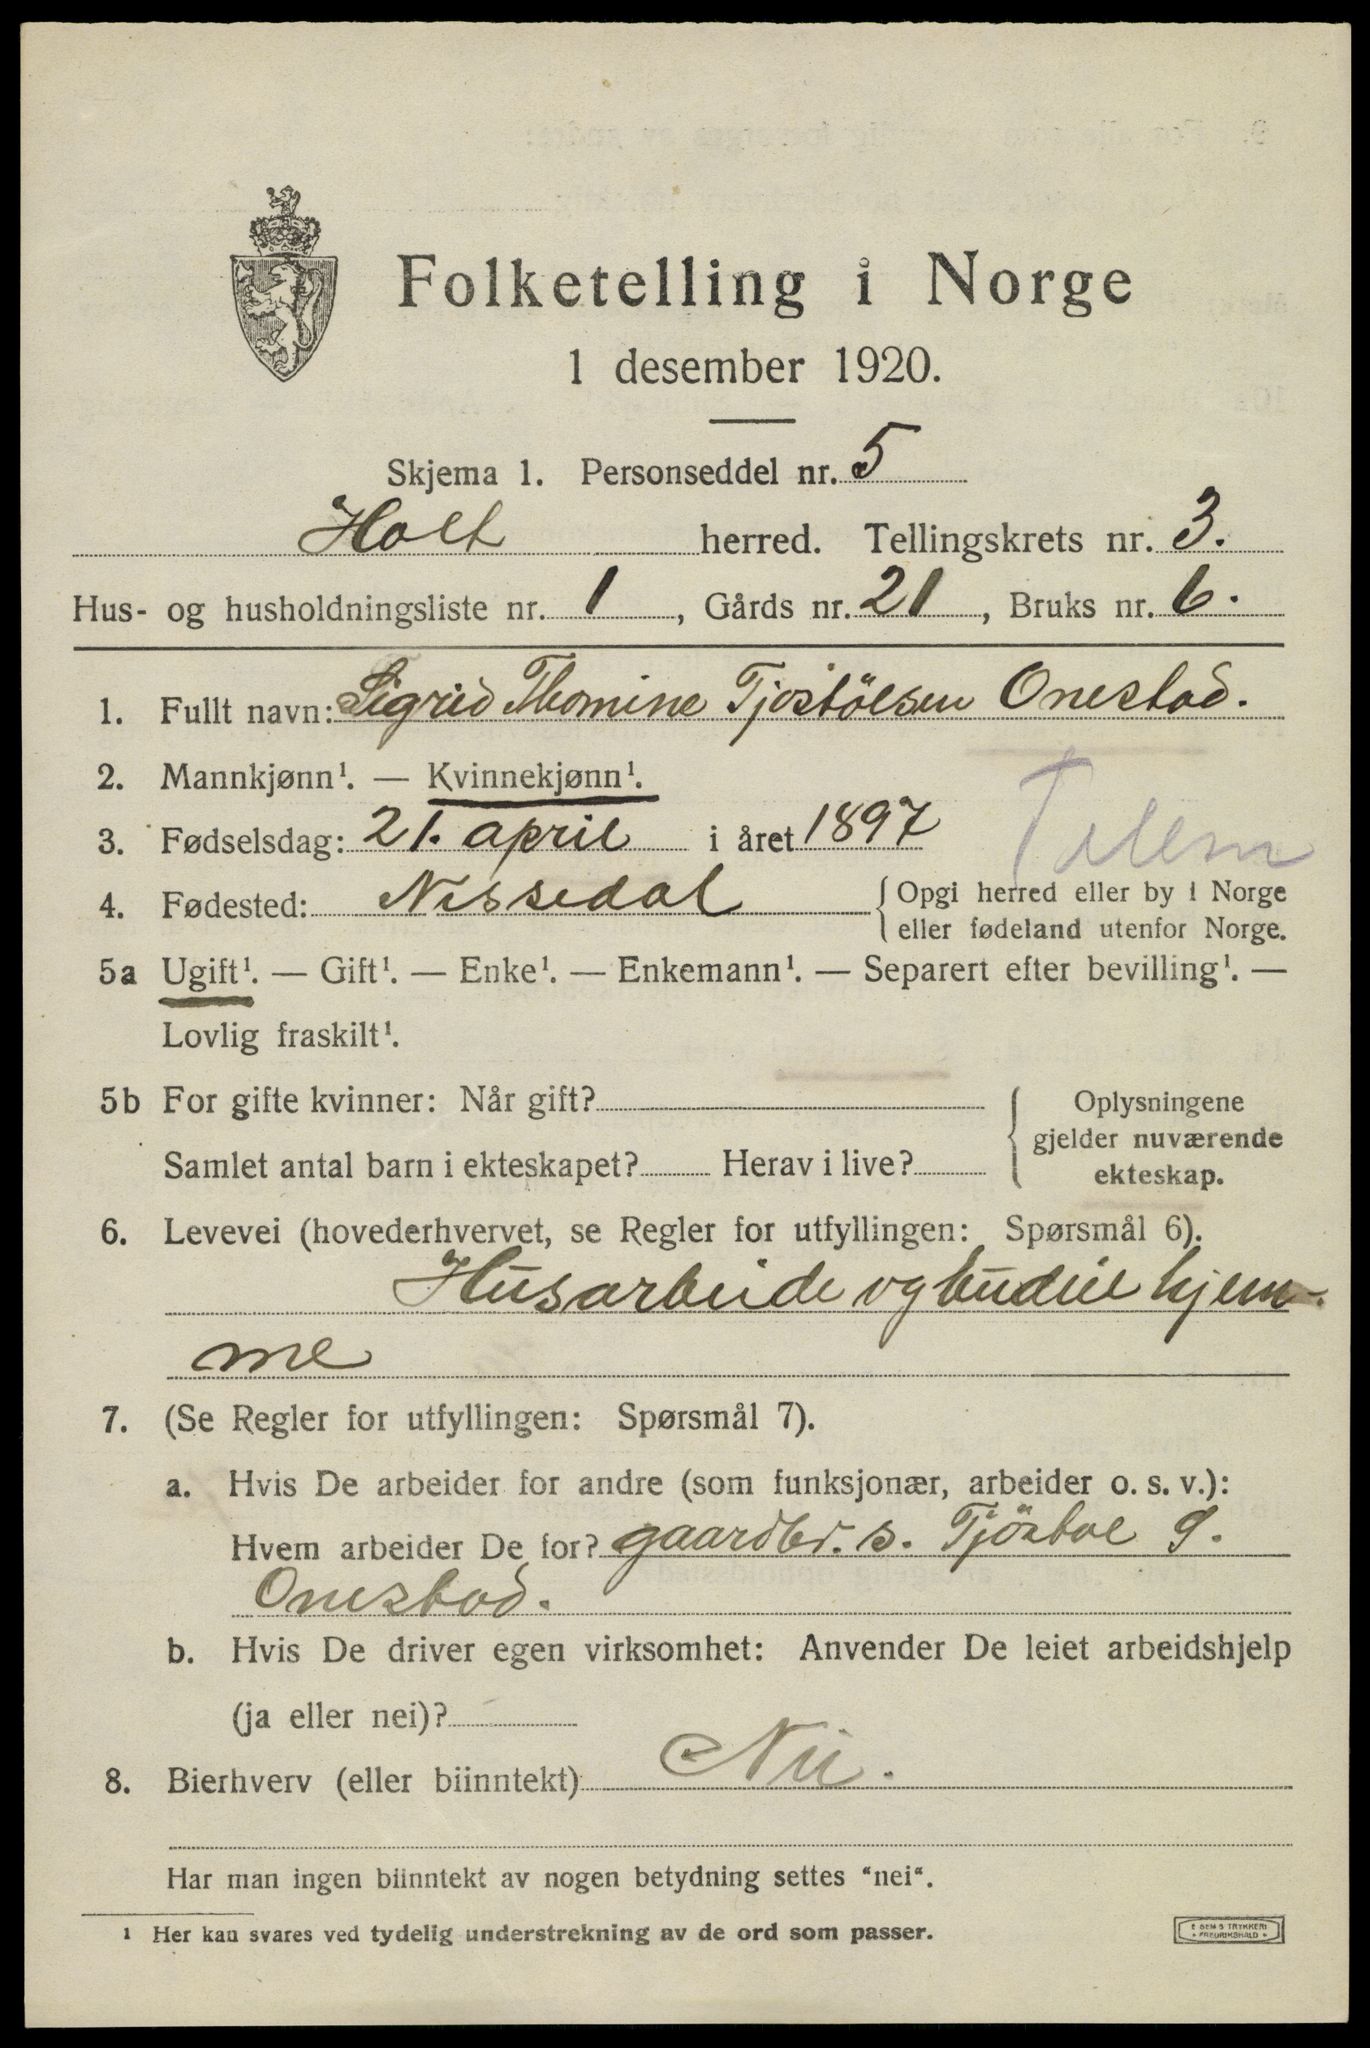 Folketelling i Norge
1 desember 1920.
Skjema 1. Personseddel nr. 5
Holt herred. Tellingskrets nr. 3.
Hus- og husholdningsliste nr. 1, Gårds nr. 21, Bruks nr. 6.
1. Fullt navn: Sigrid Thomine Tjostölsen Onestad.
2. Mannkjønn¹. — Kvinnekjønn¹.
3. Fødselsdag: 21. april i året 1897
Telem
4. Fødested: Nissedal { Opgi herred eller by i Norge
eller fødeland utenfor Norge.
5a Ugift¹. — Gift¹. — Enke¹. — Enkemann¹. — Separert efter bevilling¹. —
Lovlig fraskilt¹.
5b For gifte kvinner: Når gift? { Oplysningene
gjelder nuværende
Samlet antal barn i ekteskapet? Herav i live?
ekteskap.
6. Levevei (hovederhvervet, se Regler for utfyllingen: Spørsmål 6).
Husarbeide og budeie hjem-
me
7. (Se Regler for utfyllingen: Spørsmål 7).
a. Hvis De arbeider for andre (som funksjonær, arbeider o. s. v.):
Hvem arbeider De for? gaardbr. s. Tjöstol G.
Onestad.
b. Hvis De driver egen virksomhet: Anvender De leiet arbeidshjelp
(ja eller nei)?
8. Bierhverv (eller biinntekt) Nei.
Har man ingen biinntekt av nogen betydning settes "nei".
¹ Her kan svares ved tydelig understrekning av de ord som passer.
E SEM'S TRYKKERI
FREDRIKSHALD